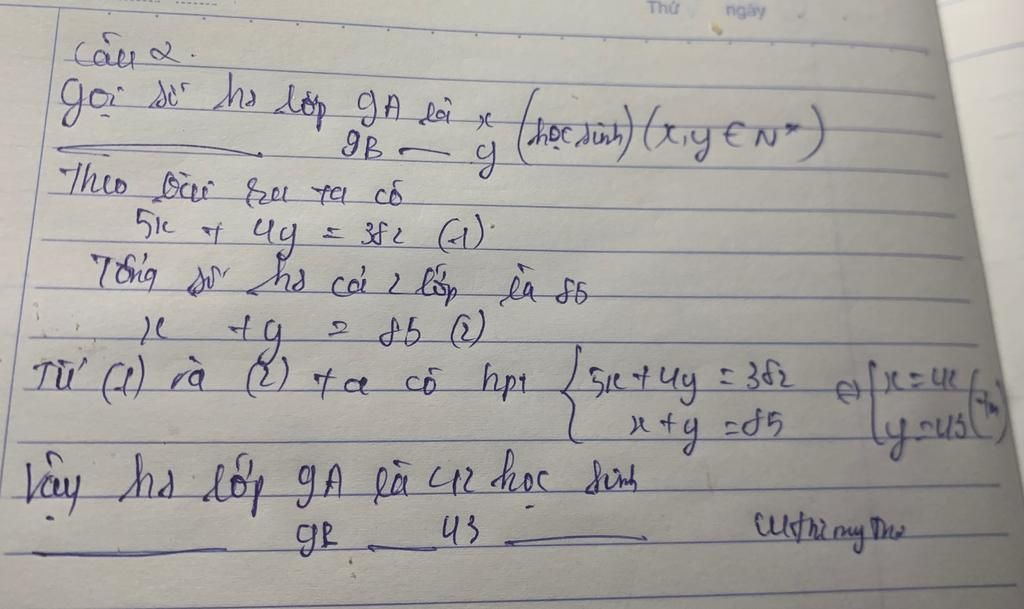 Thứ ngày
Câu 2.
Gọi số hs lớp 9A là x (học sinh) (x, y ∈ N*)
9B — y
Theo bài ra ta có
5x + 4y = 382 (1)
Tổng số hs cả 2 lớp là 85
x + y = 85 (2)
Từ (1) và (2) ta có hpt { 5x + 4y = 382 ⇔ { x = 42 (tm)
x + y = 85 y = 43
Vậy hs lớp 9A là 42 học sinh
9B — 43 —